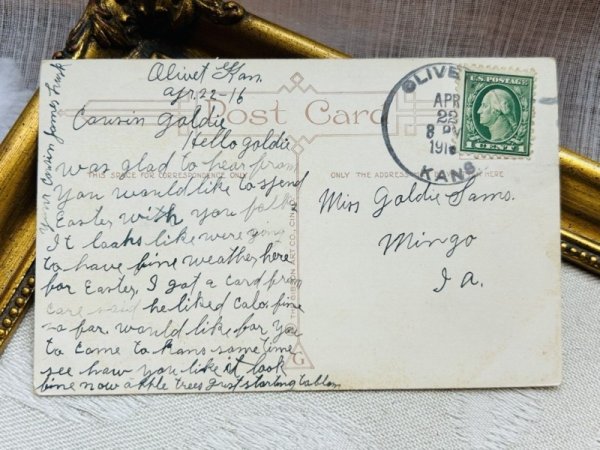 Olivet Kan.
Apr. 22-16
Post Card
Cousin Goldie
Hello goldie
was glad to hear from
THIS SPACE FOR CORRESPONDENCE ONLY
You would like to spend
Easter with you folks
It looks like were going
to have fine weather here
for Easter. I got a card from
said he liked Calo. fine
so far. would like for you
to come to Kans some time
see how you like it look
fine now apple trees just starting to bloom
your Cousin James
OLIVE
APR
22
8 PM
191
KANS
U.S. POSTAGE
1 CENT 1
ONLY THE ADDRESS HERE
Miss Goldie Sams.
Mingo
Ia.
G